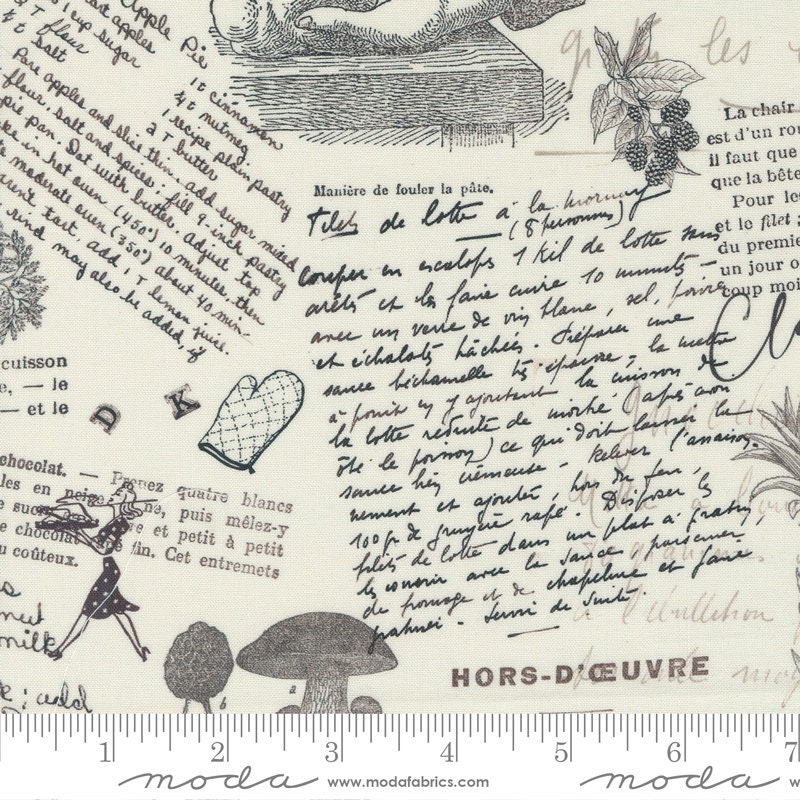 Apple Pie
tart apples
1 cup sugar
T flour
t salt
1 t cinnamon
¼ t nutmeg
2 T butter
1 recipe plain pastry
Pare apples and slice thin, add sugar mixed
flour, salt and spices; fill 9-inch pastry
pie pan. Dot with butter, adjust top
in hot oven (450°) 10 minutes, then
moderate oven (350°) about 40 min-
tart, add 1 T lemon juice.
rind may also be added, if
Manière de fouler la pâte.
filets de lotte à la mornay
(8 personnes)
couper en escalops 1 kil de lotte sans
arêts et les faire cuire 10 minuts
avec un verre de vin blanc, sel, poivre
et échalots hâchées. Préparer une
sauce béchamelle très épaisse, la mettre
à point en y ajoutant la cuisson de
la lotte réduite de moitié (après avoir
ôté le poisson) ce qui doit laisser la
sauce très crémeuse. Relever l'assaison-
nement et ajouter, hors du feu,
100 gr de gruyère rapé. Disposer les
filets de lotte dans un plat à gratin,
les couvrir avec la sauce, parsemer
de fromage et de chapelure et faire
gratiner. Servir de suite.
La chair
est d'un rou
il faut que
que la bête
Pour les
et le filet ;
du premie
un jour o
coup moi
les
cuisson
e, — le
— et le
D K
chocolat. — Prenez quatre blancs
les en neige
ne, puis mêlez-y
e chocolat
re et petit à petit
u coûteux.
fin. Cet entremets
nut
milk
add
a
b
l'ébullition
HORS-D'ŒUVRE
1 2 3 4 5 6 7
moda www.modafabrics.com moda www.modafabrics.com